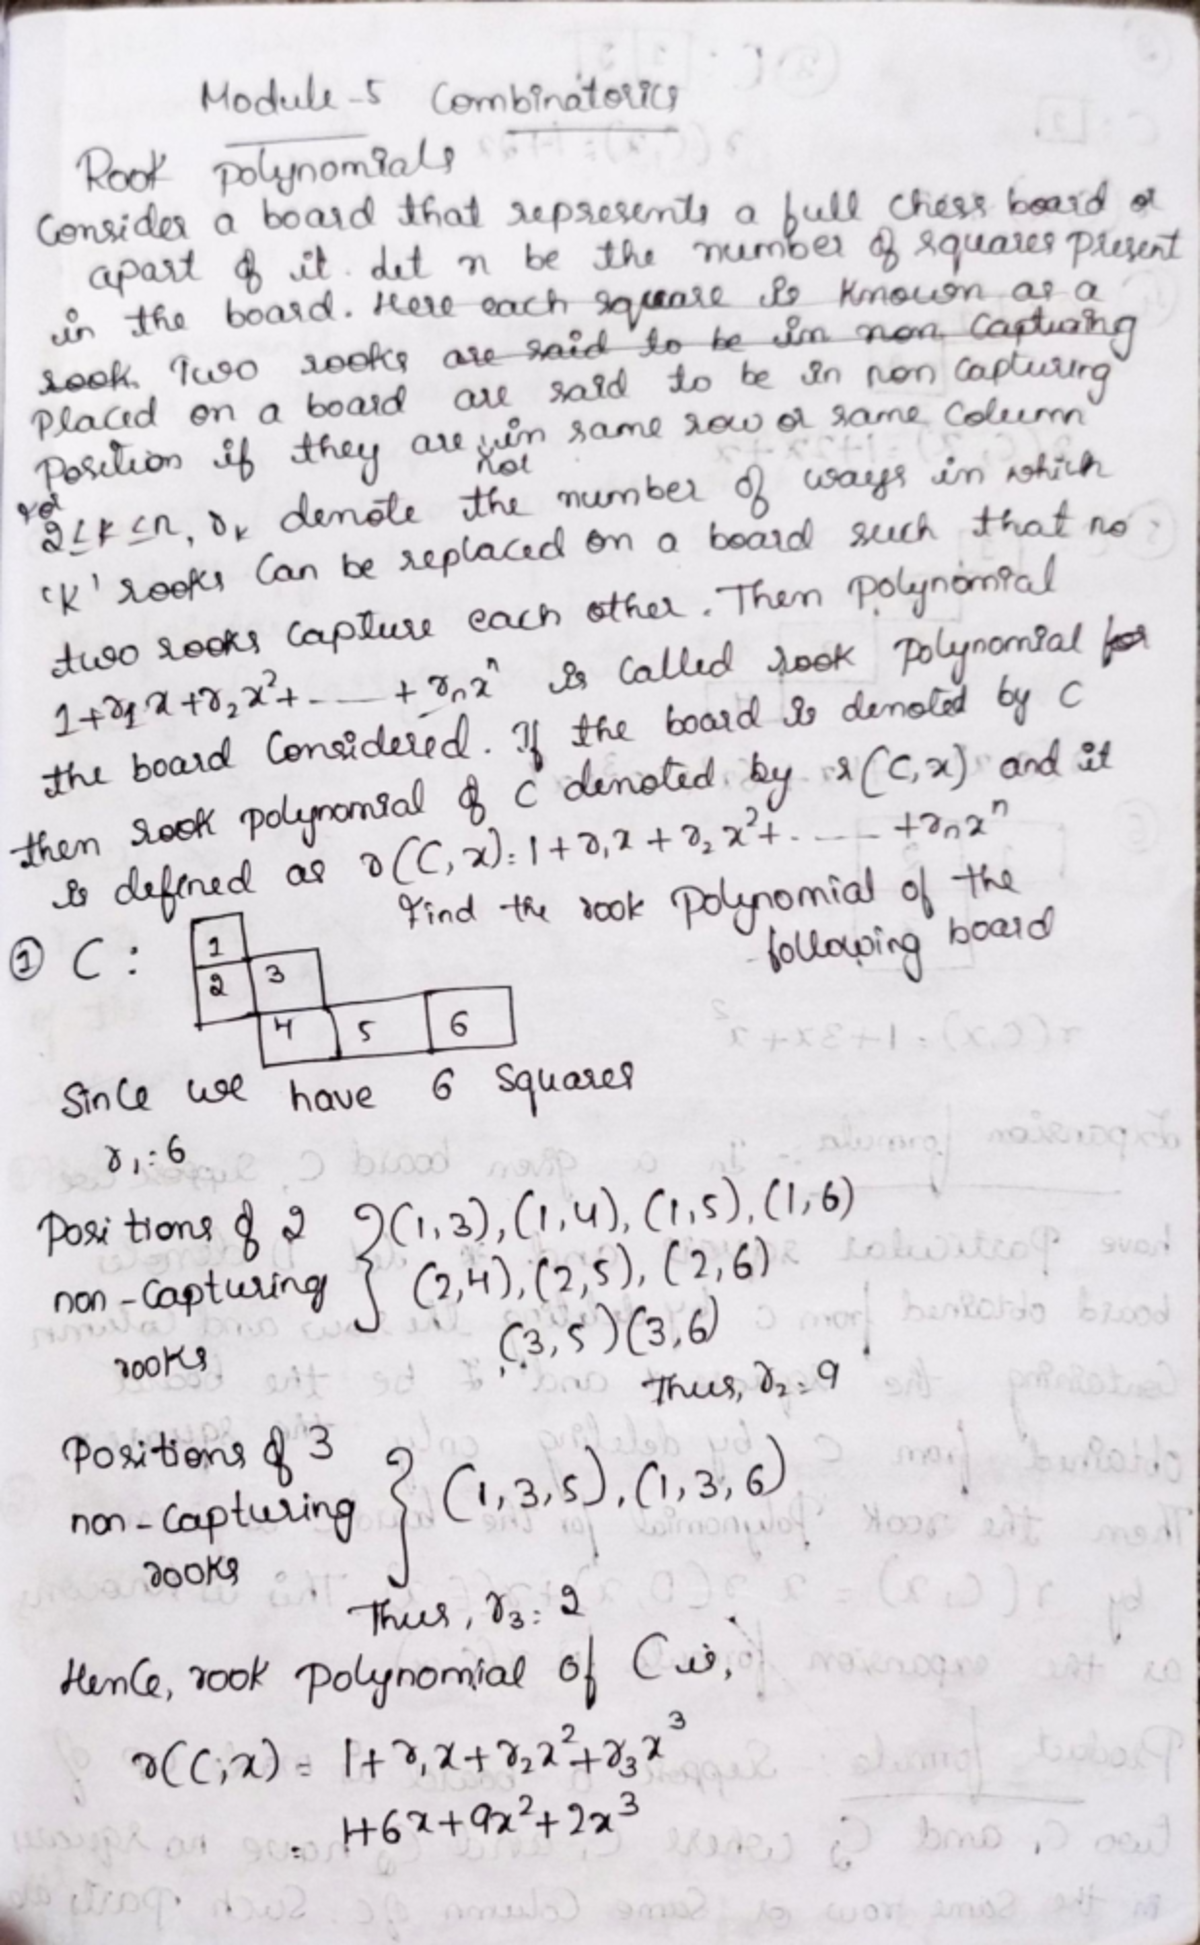 Module-5 Combinatorics
Rook polynomials
Consider a board that represents a full chess board or
apart of it. Let n be the number of squares present
in the board. Here each square is known as a
rook. Two rooks are said to be in non capturing
placed on a board are said to be in non capturing
position if they are not in same row or same column
2≤k≤n, rₖ denote the number of ways in which
'k' rooks can be replaced on a board such that no
two rooks capture each other. Then polynomial
1+r₁x+r₂x²+......+rₙxⁿ is called rook polynomial for
the board considered. If the board is denoted by C
then rook polynomial of C denoted by r(C,x) and it
is defined as r(C,x)=1+r₁x+r₂x²+......+rₙxⁿ
Find the rook polynomial of the
following board
① C:
1
2 3
4 5 6
Since we have 6 squares
r₁=6
Positions of 2 non-capturing rooks } (1,3),(1,4),(1,5),(1,6)
(2,4),(2,5),(2,6)
(3,5)(3,6)
Thus, r₂=9
Positions of 3 non-capturing rooks } (1,3,5),(1,3,6)
Thus, r₃=2
Hence, rook polynomial of C is,
r(C,x) = 1+r₁x+r₂x²+r₃x³
= 1+6x+9x²+2x³